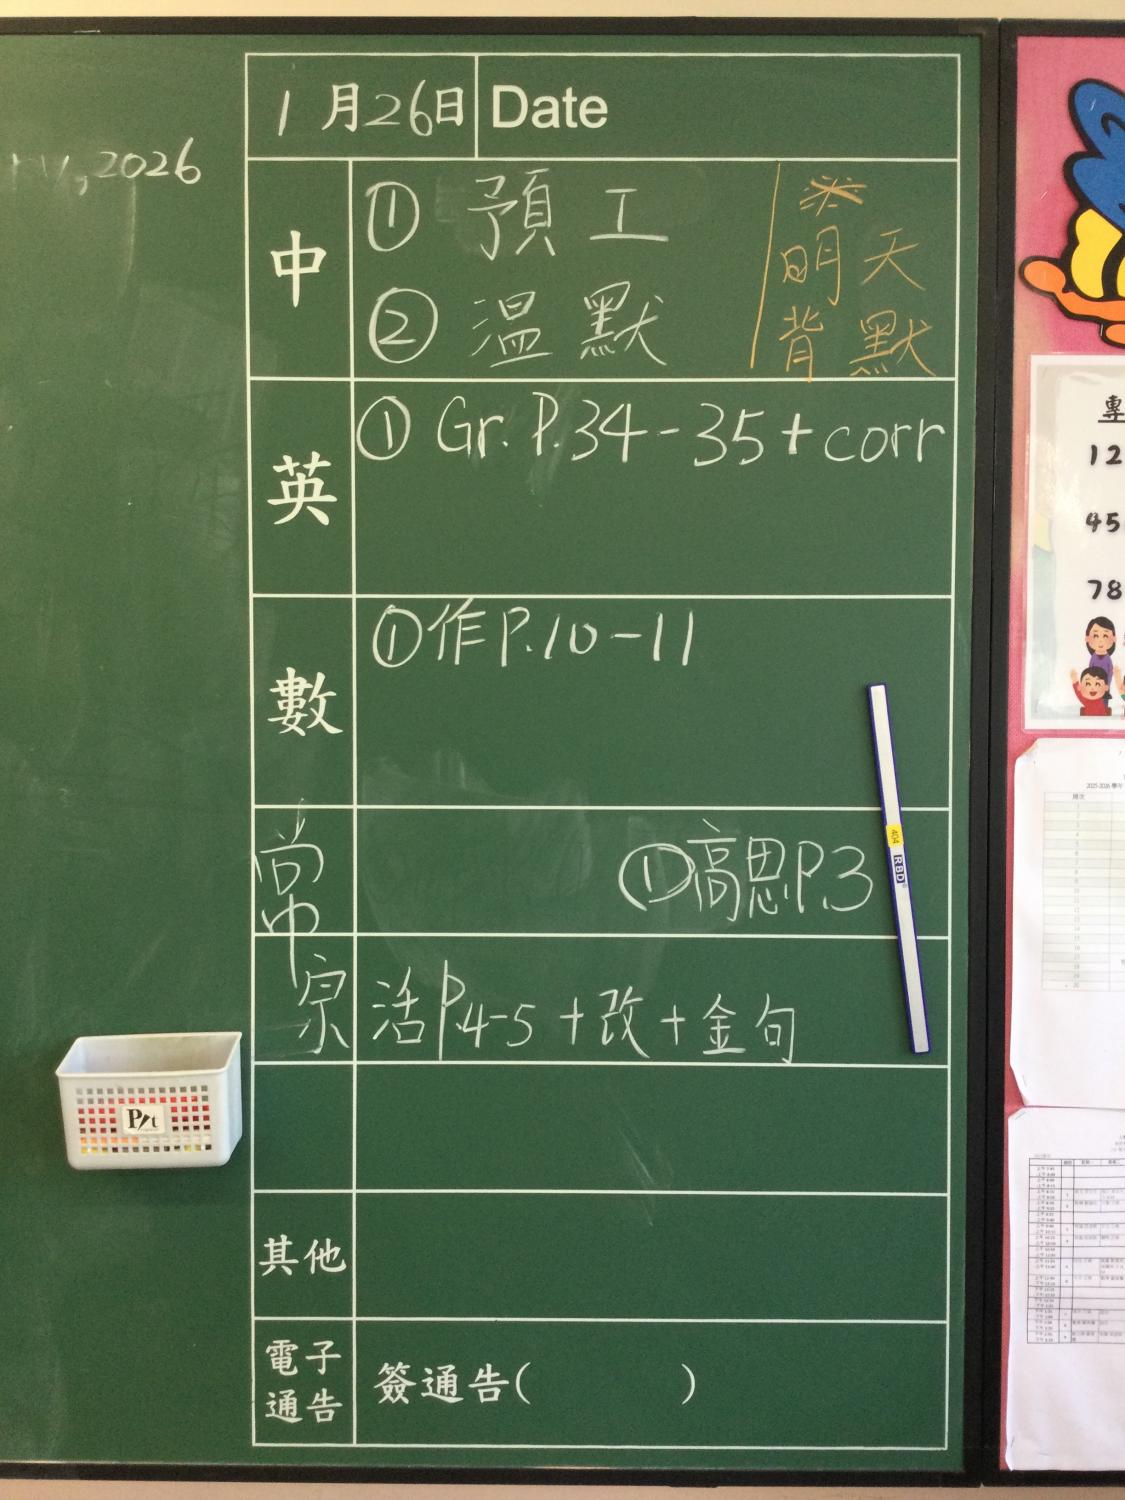 1月26日 Date
2026
中
① 預工
② 溫默
明天
背默
英
① Gr. P.34-35+corr
數
① 作P.10-11
常
① 高思P.3
宗
活P.4-5+改+金句
其他
電子
通告
簽通告( )
404 RBD
12
45
78